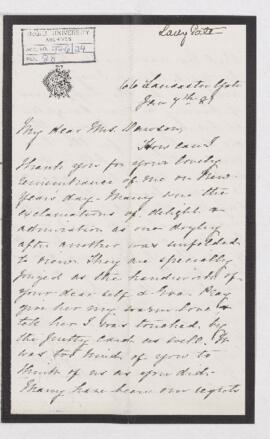 Lady Tate
McGILL UNIVERSITY
ARCHIVES
ACC. NO.
REF.
66 Lancaster Gate
Jan 7th 8
My dear Mrs. Dawson,
How can I
thank you for your lovely
remembrance of me on New
Years day. Many were the
exclamations of delight &
admiration as one doyley
after another was unfolded
to view. They are specially
prized as the handiwork of
your dear self & Eva. Pray
give her my warm love &
tell her I was touched by
the pretty card as well. It
was too kind of you to
think of us as you did.
Many have been our regrets